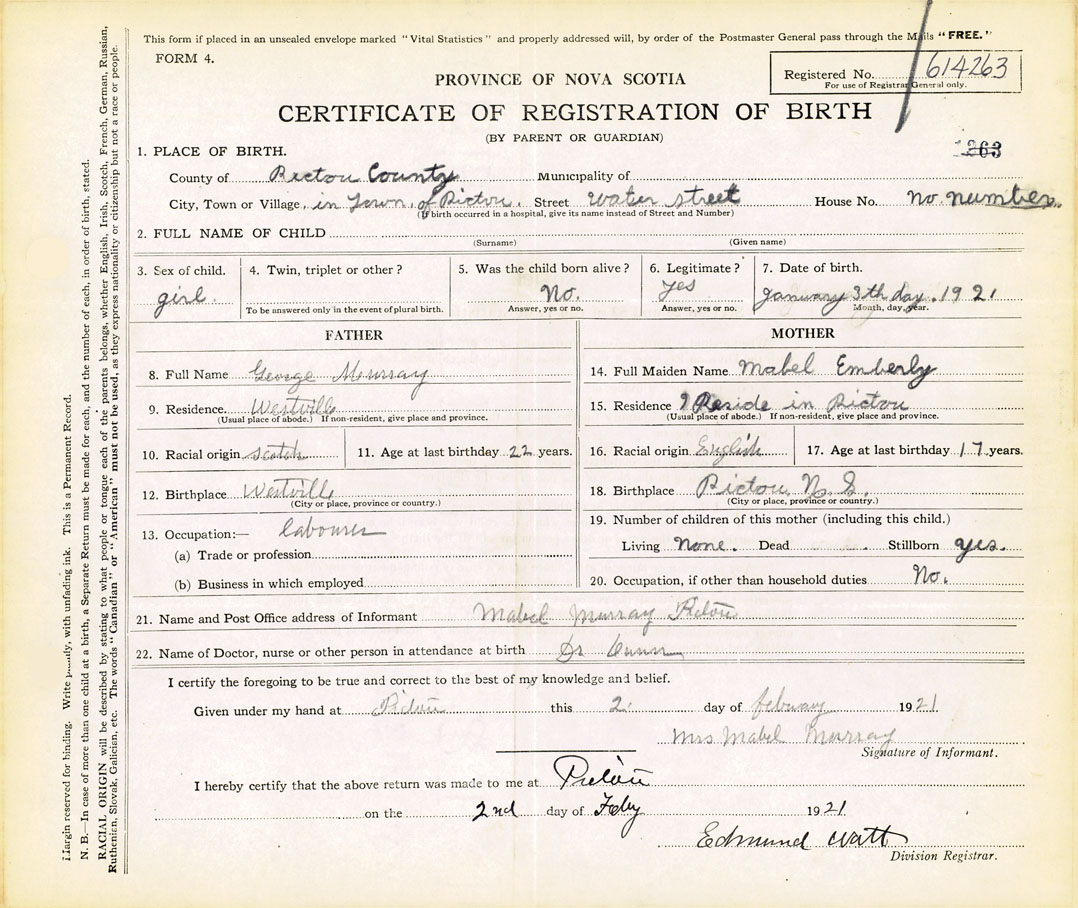 This form if placed in an unsealed envelope marked "Vital Statistics" and properly addressed will, by order of the Postmaster General pass through the Mails "FREE."
FORM 4.
Registered No. 614263
For use of Registrar General only.
PROVINCE OF NOVA SCOTIA
CERTIFICATE OF REGISTRATION OF BIRTH
(BY PARENT OR GUARDIAN)
1. PLACE OF BIRTH.
263
County of Pictou County Municipality of
City, Town or Village, in Town of Pictou. Street Water street House No. no. number.
(If birth occurred in a hospital, give its name instead of Street and Number)
2. FULL NAME OF CHILD
(Surname) (Given name)
3. Sex of child. 4. Twin, triplet or other? 5. Was the child born alive? 6. Legitimate? 7. Date of birth.
girl. No. yes January 3th day. 1921
To be answered only in the event of plural birth. Answer, yes or no. Answer, yes or no. Month, day, year.
FATHER
8. Full Name George Murray
9. Residence. Westville
(Usual place of abode.) If non-resident, give place and province.
10. Racial origin scotch 11. Age at last birthday 22 years.
12. Birthplace Westville
(City or place, province or country.)
13. Occupation:— labourer
(a) Trade or profession
(b) Business in which employed
MOTHER
14. Full Maiden Name Mabel Emberly
15. Residence I Reside in Pictou
(Usual place of abode.) If non-resident, give place and province.
16. Racial origin English 17. Age at last birthday 17 years.
18. Birthplace Pictou N.S.
(City or place, province or country.)
19. Number of children of this mother (including this child.)
Living None. Dead Stillborn yes.
20. Occupation, if other than household duties No.
21. Name and Post Office address of Informant Mabel Murray Pictou
22. Name of Doctor, nurse or other person in attendance at birth Dr Dunn
I certify the foregoing to be true and correct to the best of my knowledge and belief.
Given under my hand at Pictou this 2. day of february 1921
Mrs Mabel Murray
Signature of Informant.
I hereby certify that the above return was made to me at Pictou
on the 2nd day of Feby 1921
Edmund Watt
Division Registrar.
Margin reserved for binding. Write plainly, with unfading ink. This is a Permanent Record.
N. B.—In case of more than one child at a birth, a Separate Return must be made for each, and the number of each, in order of birth, stated.
RACIAL ORIGIN will be described by stating to what people or tongue each of the parents belongs, whether English, Irish, Scotch, French, German, Russian,
Ruthenian, Slovak, Galician, etc. The words "Canadian" or "American" must not be used, as they express nationality or citizenship but not a race or people.